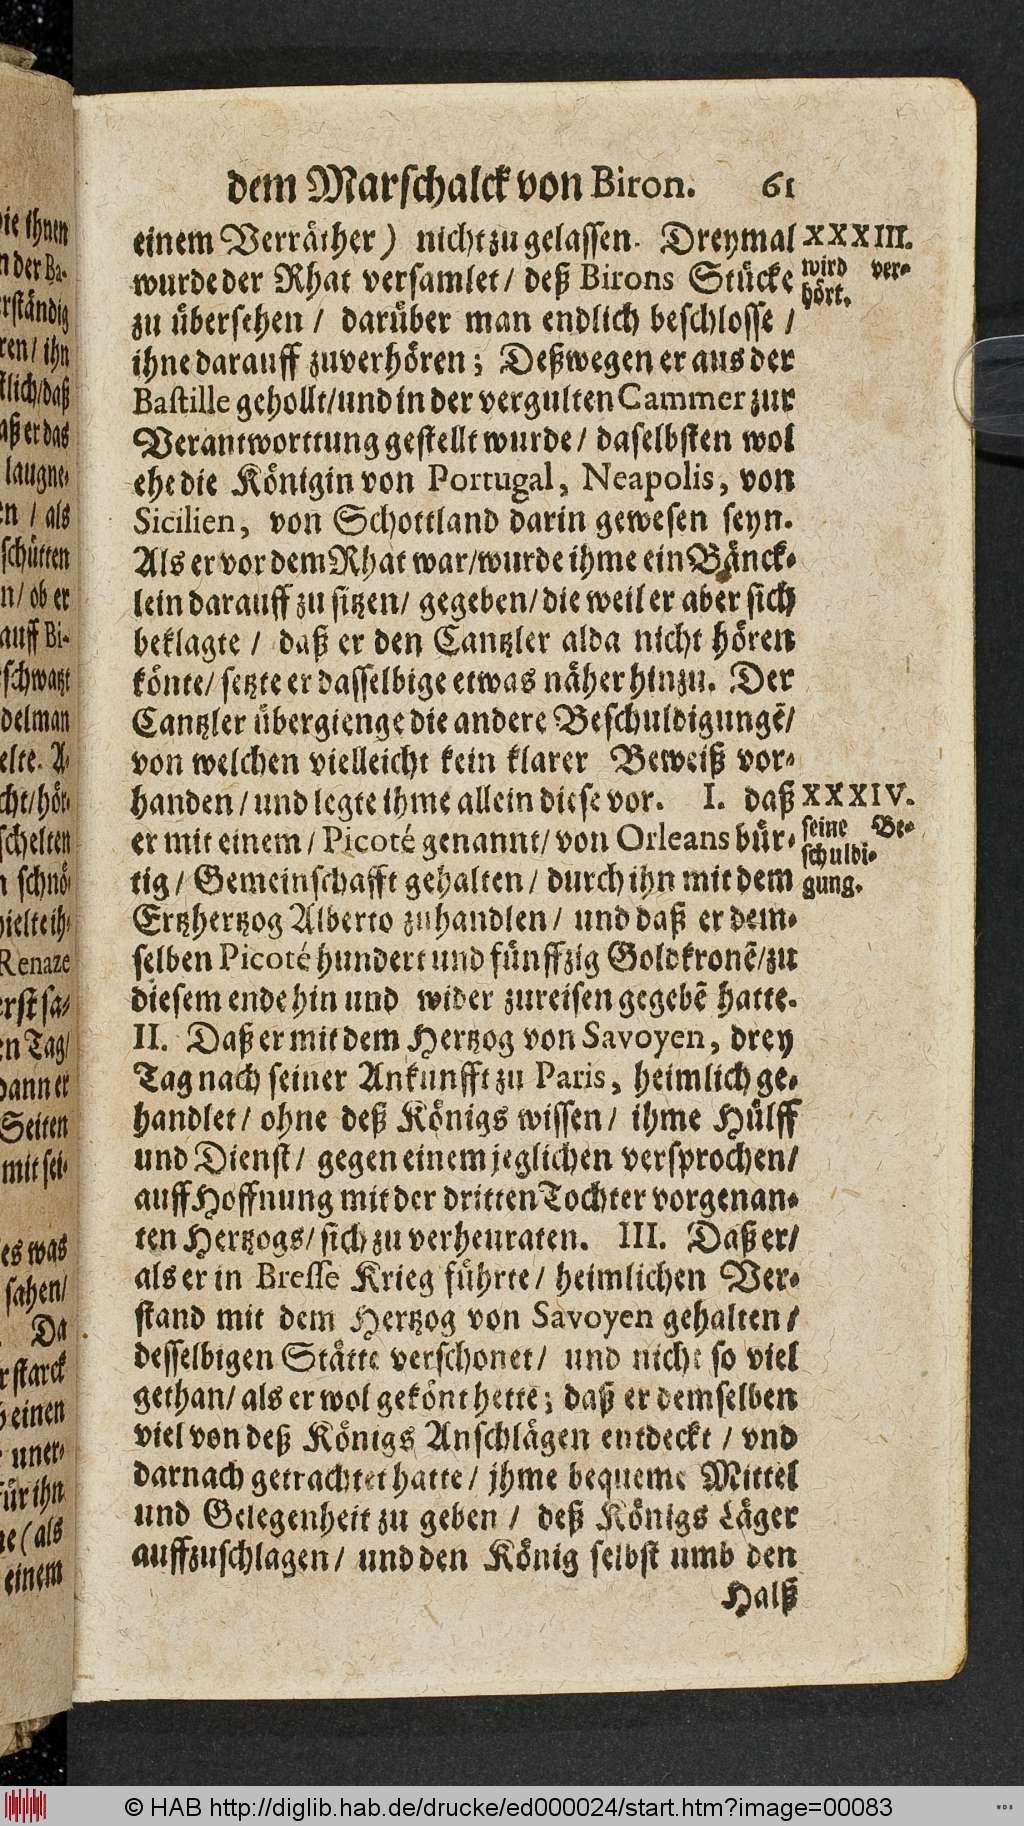 dem Marschalck von Biron. 61
einem Verräther) nicht zu gelassen. Dreymal
wurde der Rhat versamlet / deß Birons Stücke
zu übersehen / darüber man endlich beschlosse /
ihne darauff zuverhören; Deßwegen er aus der
Bastille gehollt/und in der vergulten Cammer zur
Verantworttung gestellt wurde / daselbsten wol
ehe die Königin von Portugal, Neapolis, von
Sicilien, von Schottland darin gewesen seyn.
Als er vor dem Rhat war/wurde ihme ein Bänck-
lein darauff zu sitzen/ gegeben/die weil er aber sich
beklagte / daß er den Cantzler alda nicht hören
könte/ setzte er dasselbige etwas näher hinzu. Der
Cantzler übergienge die andere Beschuldigungē/
von welchen vielleicht kein klarer Beweiß vor-
handen / und legte ihme allein diese vor. I. daß
er mit einem / Picoté genannt/ von Orleans bür-
tig / Gemeinschafft gehalten / durch ihn mit dem
Ertzhertzog Alberto zuhandlen / und daß er dem-
selben Picoté hundert und fünffzig Goldkronē/zu
diesem ende hin und wider zureisen gegebē hatte.
II. Daß er mit dem Hertzog von Savoyen, drey
Tag nach seiner Ankunfft zu Paris, heimlich ge-
handlet / ohne deß Königs wissen / ihme Hülff
und Dienst / gegen einem jeglichen versprochen/
auff Hoffnung mit der dritten Tochter vorgenan-
ten Hertzogs/ sich zu verheuraten. III. Daß er/
als er in Bresse Krieg führte / heimlichen Ver-
stand mit dem Hertzog von Savoyen gehalten /
desselbigen Stätte verschonet / und nicht so viel
gethan / als er wol gekönt hette; daß er demselben
viel von deß Königs Anschlägen entdeckt / vnd
darnach getrachtet hatte / jhme bequeme Mittel
und Gelegenheit zu geben / deß Königs Läger
auffzuschlagen / und den König selbst umb den
Halß
XXXIII.
wird ver-
hört.
XXXIV.
seine Be-
schuldi-
gung.
ie ihnen
n der Ba-
rständig
ren/ ihn
lich/daß
aß er das
laugne-
en / als
schütten
n/ ob er
auff Bi-
schwatzt
delman
elte. A-
cht/hör-
schelten
n schnö-
ielte ih-
Renaze
erst sa-
en Tag/
dann er
Seiten
mit sei-
es was
sahen/
Da
r starck
einen
uner-
ür ihn
e (als
einem
© HAB http://diglib.hab.de/drucke/ed000024/start.htm?image=00083
WDB